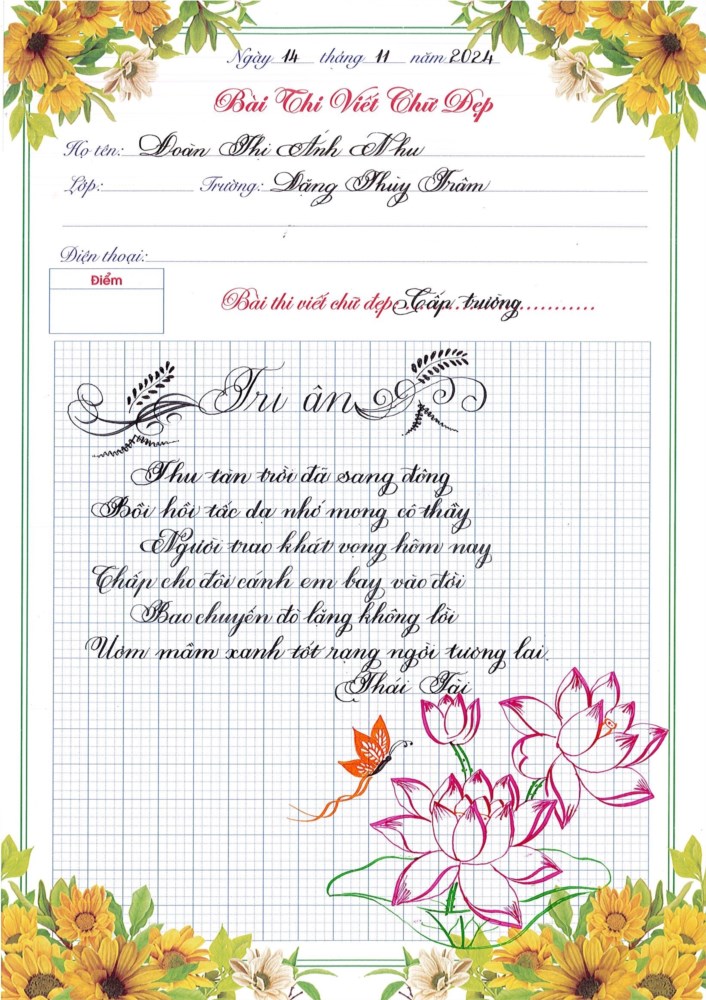 Ngày 14 tháng 11 năm 2024
Bài Thi Viết Chữ Đẹp
Họ tên: Đoàn Thị Ánh Như
Lớp: Trường: Đặng Thùy Trâm
Điện thoại:
Điểm
Bài thi viết chữ đẹp: Cấp trường
Tri ân
Thu tàn trời đã sang đông
Bồi hồi tấc dạ nhớ mong cô thầy
Người trao khát vọng hôm nay
Chắp cho đôi cánh em bay vào đời
Bao chuyến đò lặng không lời
Ươm mầm xanh tốt rạng ngời tương lai.
Thái Tài